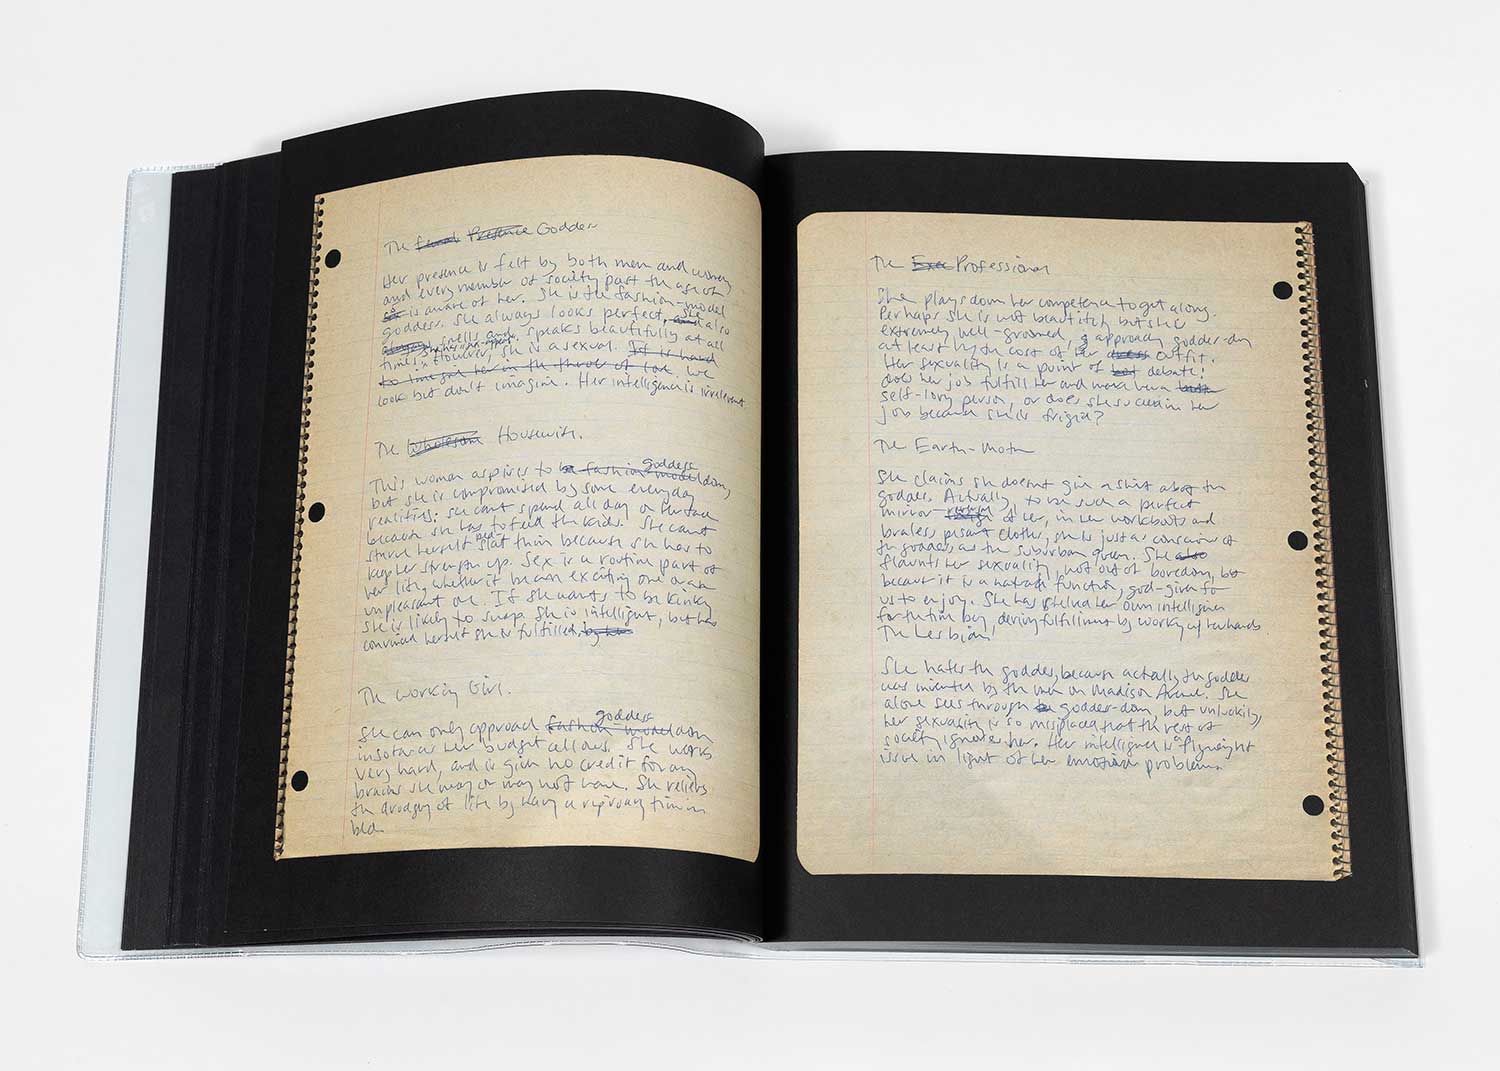 The Presence Goddess
Her presence is felt by both men and women
and every member of society past the age of
is aware of her. She is the fashion-model
goddess. She always looks perfect, she also
smells and speaks beautifully at all
times. However, she is asexual. It is hard
to imagine her in the throes of love. We
look but don't imagine. Her intelligence is irrelevant.
The Wholesome Housewife.
goddess
This woman aspires to be fashion-model dom,
but she is compromised by some everyday
realities. She can't spend all day on surface
because she has to feed the kids. She can't
starve herself flat thin because she has to
keep her strength up. Sex is a routine part of
her life, whether it be an exciting one or an
unpleasant one. If she wants to be kinky
she is likely to snap. She is intelligent, but has
convinced herself she is fulfilled.
The Working Girl.
goddess
She can only approach fashion-model dom
insofar as her budget allows. She works
very hard, and is given no credit for any
brains she may or may not have. She relieves
the drudgery of life by having a rip-roaring time in
bed.
The Professional
She plays down her competence to get along.
Perhaps she is not beautiful, but she is
extremely well-groomed, approaching goddess-dom
at least by the cost of her dress outfit.
Her sexuality is a point of debate:
does her job fulfill her and make her a
self-loving person, or does she succeed in her
job because she is frigid?
The Earth-Mother
She claims she doesn't give a shit about the
goddess. Actually, to be such a perfect
mirror- of her, in her workboots and
braless peasant clothes, she is just as conscious of
the goddess as the suburban queen. She also
flaunts her sexuality, not out of boredom, but
because it is a natural function, god-given for
us to enjoy. She has shelved her own intelligence
for the time being, deriving fulfillment by working w/ her hands
The Lesbian
She hates the goddess, because actually the goddess
was invented by the men on Madison Avenue. She
alone sees through goddess-dom, but unluckily,
her sexuality is so misplaced that the rest of
society ignores her. Her intelligence is a flyweight
issue in light of her emotional problems.